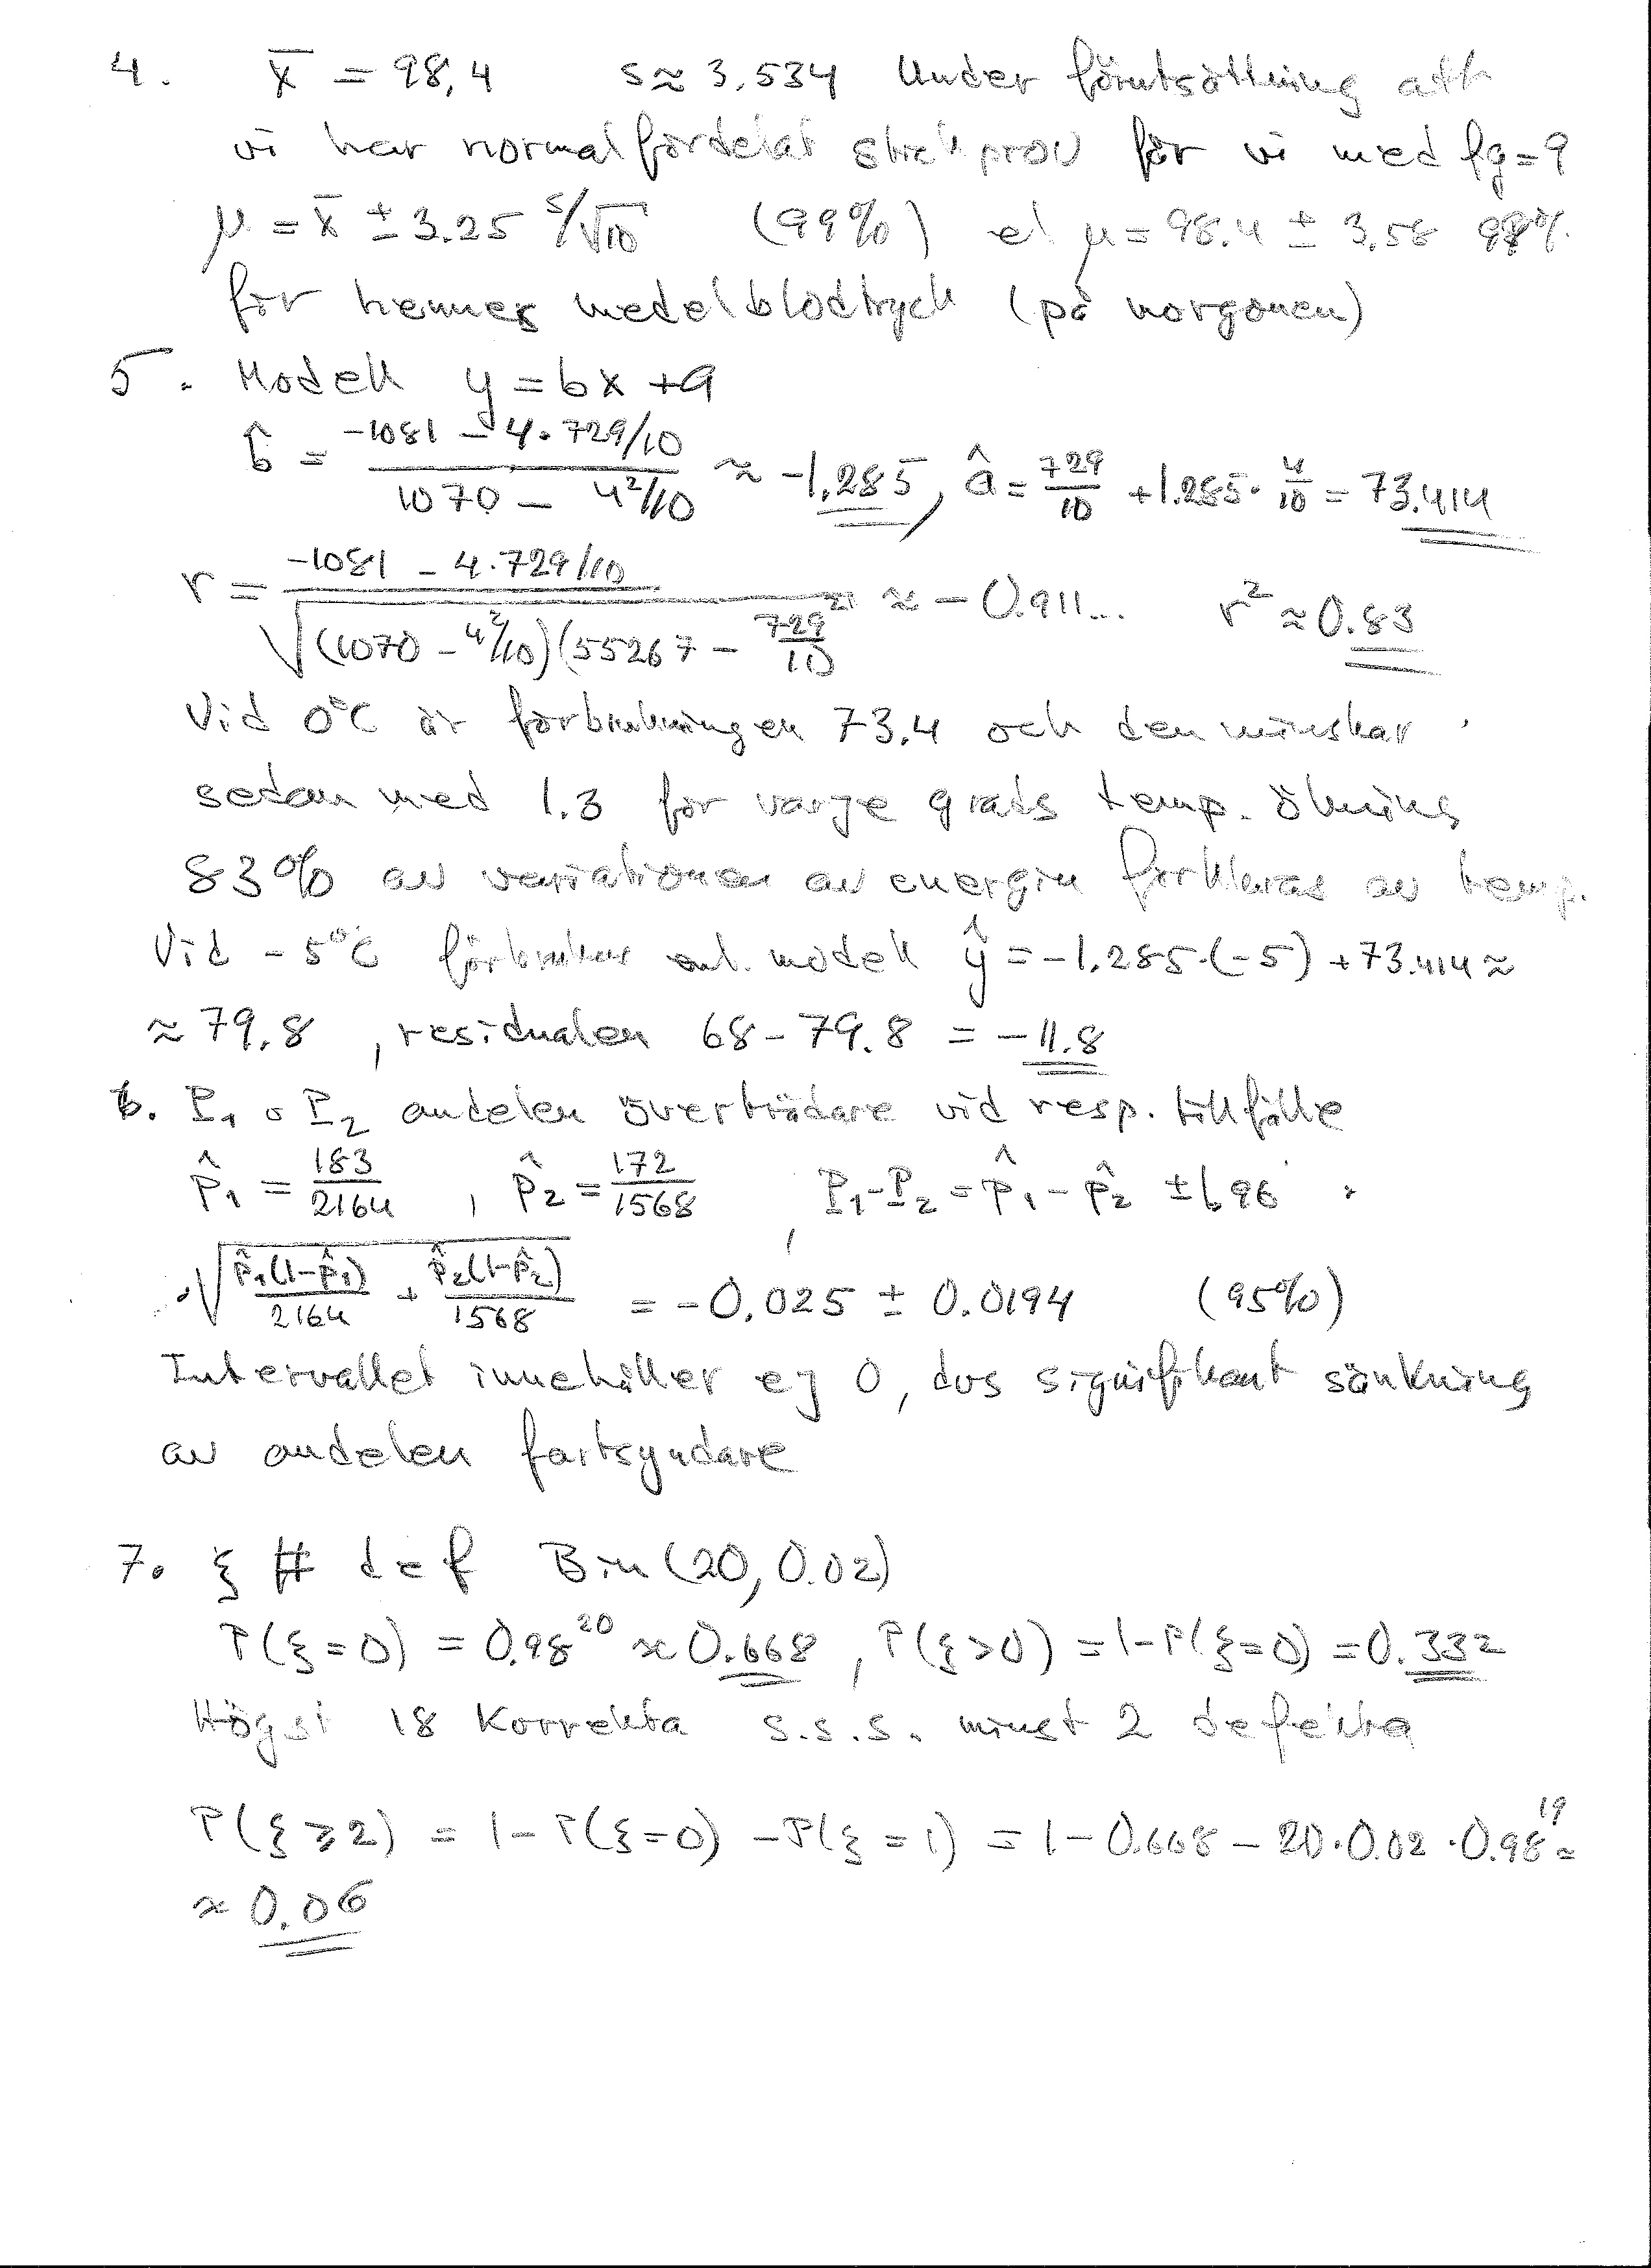 4. x̄ = 98,4 s≈ 3,534 Under förutsättning att
vi har normalfördelat stickprov får vi med fg=9
μ = x̄ ± 3.25 s/√10 (99%) el μ = 98.4 ± 3,58 99%
för hennes medelblodtryck (på morgonen)
5. Modell y = bx + a
b̂ = (-1081 - 4·729/10)/(1070 - 4²/10) ≈ -1,285, â = 729/10 + 1.285· 4/10 = 73.414
r = (-1081 - 4·729/10)/√((1070 - 4²/10)(55267 - 729²/10 ≈ -0.911... r² ≈ 0.83
Vid 0°C är förbrukningen 73,4 och den minskar
sedan med 1.3 för varje grads temp. ökning
83% av variationen av energin förklaras av temp.
Vid -5°C förbrukas enl. modell ŷ = -1,285·(-5) + 73.414 ≈
≈ 79,8, residualen 68 - 79.8 = -11.8
6. P₁ o P₂ andelen överträdare vid resp. tillfälle
p̂₁ = 183/2164, p̂₂ = 172/1568, P₁-P₂ = p̂₁ - p̂₂ ± 1,96 ·
·√(p̂₁(1-p̂₁)/2164 + p̂₂(1-p̂₂)/1568) = -0,025 ± 0.0194 (95%)
Intervallet innehåller ej 0, dvs signifikant sänkning
av andelen fartsyndare
7. ξ # def Bin(20, 0.02)
P(ξ=0) = 0.98²⁰ ≈ 0.668, P(ξ>0) = 1-P(ξ=0) = 0.332
Högst 18 korrekta s.s.s. minst 2 defekta
P(ξ≥2) = 1 - P(ξ=0) - P(ξ=1) = 1 - 0.668 - 20·0.02·0.98¹⁹ ≈
≈ 0.06